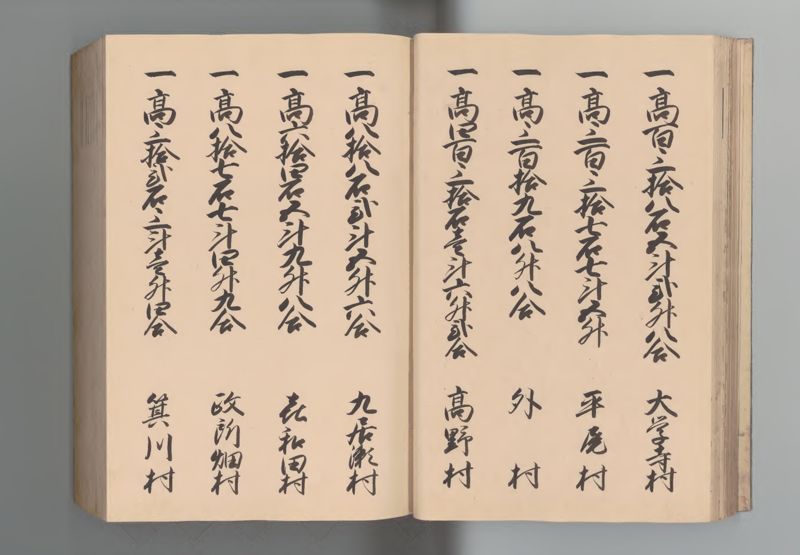 一高百三拾八石五斗弐升八合 大学寺村
一高三百三拾七石七斗五升 平尾村
一高三百拾九石八升八合 外村
一高四百三拾石壱斗六升弐合 高野村
一高八拾八石弐斗五升六合 九居瀬村
一高六拾四石五斗九升八合 㐂和田村
一高八拾七石七斗四升九合 政所畑村
一高三拾弐石三斗壱升四合 箕川村